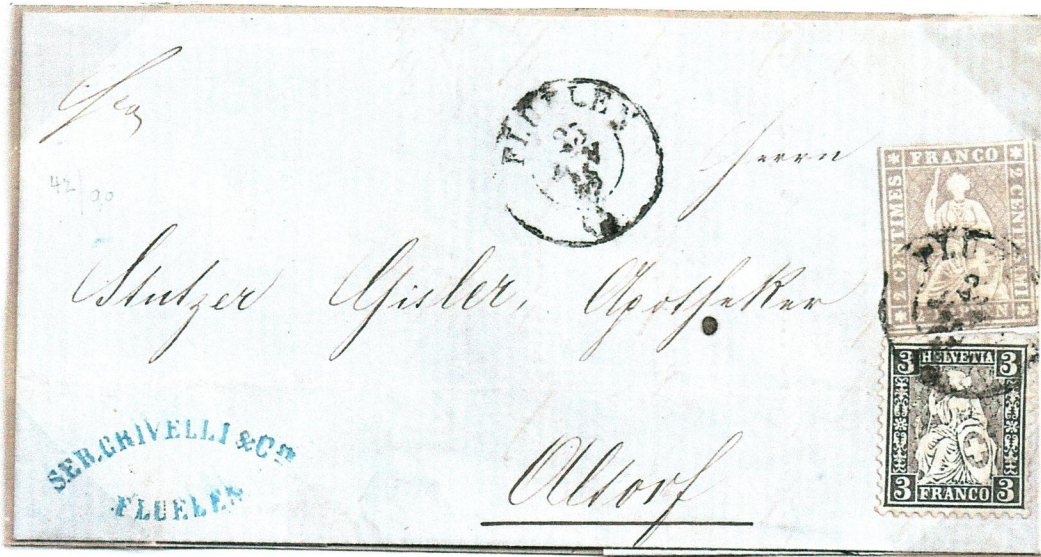 FLUELEN
Herrn
42/90
Stutzer Gisler, Apotheker
Altorf
SEB. CRIVELLI & Cie
FLUELEN
FRANCO
2 CENTIMES
2 CENTESIMI
2 RAPPEN
FLU
3 HELVETIA 3
3 FRANCO 3